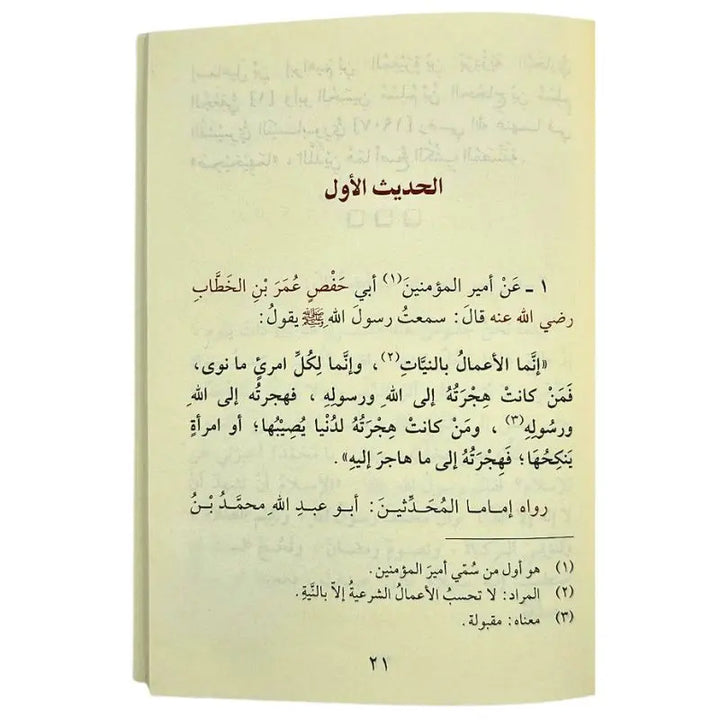 الحديث الأول
١ ـ عَنْ أمير المؤمنينَ(١) أبي حَفْصٍ عُمَرَ بْنِ الخَطَّابِ
رضي الله عنه قالَ: سمعتُ رسولَ اللهِ ﷺ يقولُ:
«إنَّما الأعمالُ بالنيَّاتِ(٢)، وإنَّما لِكُلِّ امرئٍ ما نوى،
فَمَنْ كانتْ هِجْرَتُهُ إلى اللهِ ورسولِهِ، فهجرتُه إلى اللهِ
ورسُولِهِ(٣)، ومَنْ كانتْ هِجْرَتُهُ لدُنْيا يُصِيْبُها؛ أو امرأةٍ
يَنكِحُهَا؛ فَهِجْرَتُهُ إلى ما هاجرَ إليهِ».
رواه إماما المُحَدِّثينَ: أبو عبدِ اللهِ محمَّدُ بْنُ
(١) هو أول من سُمِّي أميرَ المؤمنين.
(٢) المراد: لا تحسبُ الأعمالُ الشرعيةُ إلاّ بالنيَّةِ.
(٣) معناه: مقبولة.
٢١